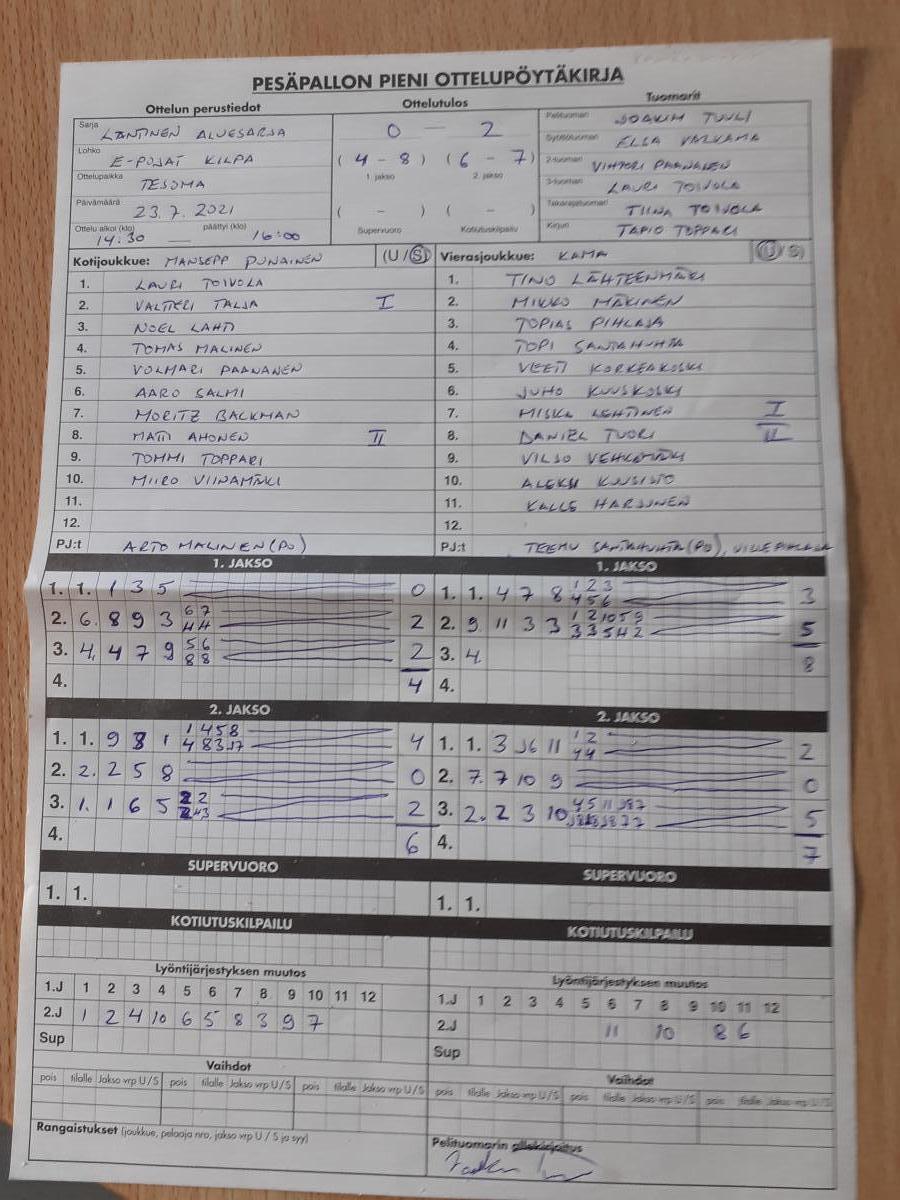 PESÄPALLON PIENI OTTELUPÖYTÄKIRJA
Ottelun perustiedot Ottelutulos Tuomarit
Sarja LÄNTINEN ALUESARJA 0 — 2 Pelituomari JOAKIM TUULI
Lohko E-POJAT KILPA (4 - 8) (6 - 7) Syöttötuomari ELSA VALKAMA
1. jakso 2. jakso 2-tuomari VIHTORI PAANANEN
Ottelupaikka TESOMA 3-tuomari LAURI TOIVOLA
Päivämäärä 23.7.2021 ( - ) ( - ) Takarajatuomari TIINA TOIVOLA
Ottelu alkoi (klo) 14:30 — päättyi (klo) 16:00 Supervuoro Kotiutuskilpailu Kirjuri TAPIO TOPPARI
Kotijoukkue: MANSEPP PUNAINEN (U/S) Vierasjoukkue: KAMA (U/S)
1. LAURI TOIVOLA 1. TINO LÄHTEENMÄKI
2. VALTTERI TALJA I 2. MIKKO MÄKINEN
3. NOEL LAHTI 3. TOPIAS PIHLAJA
4. TOMAS MALINEN 4. TOPI SANTAHUHTA
5. VOLMARI PAANANEN 5. VEETI KORKEAKOSKI
6. AARO SALMI 6. JUHO KUUSKOSKI
7. MORITZ BACKMAN 7. MISKA LEHTINEN I
8. MATTI AHONEN II 8. DANIEL TUORI II
9. TOMMI TOPPARI 9. VILJO VEHKOMÄKI
10. MIIRO VIINAMÄKI 10. ALEKSI KUUSISTO
11. 11. KALLE HARJUNEN
12. 12.
PJ:t ARTO MALINEN (PJ) PJ:t TEEMU SANTAHUHTA (PJ), VILLE PIHLAJA
1. JAKSO 1. JAKSO
1. 1. 1 3 5 0 1. 1. 4 7 8 1 2 3 4 5 6 3
2. 6. 8 9 3 6 7 4 4 2 2. 9 11 3 3 1 2 10 5 9 3 3 5 4 2 5
3. 4. 4 7 9 5 6 8 8 2 3. 4. 8
4. 4 4.
2. JAKSO 2. JAKSO
1. 1. 9 8 1 1 4 5 8 4 8 3 4 1. 1. 3 11 1 2 4 4 2
2. 2. 2 5 8 0 2. 7. 7 10 9 0
3. 1. 1 6 5 2 2 2 3. 2. 2 3 10 4 5 11 5
4. 6 4. 7
SUPERVUORO SUPERVUORO
1. 1. 1. 1.
KOTIUTUSKILPAILU KOTIUTUSKILPAILU
Lyöntijärjestyksen muutos Lyöntijärjestyksen muutos
1.J 1 2 3 4 5 6 7 8 9 10 11 12 1.J 1 2 3 4 5 6 7 8 9 10 11 12
2.J 1 2 4 10 6 5 8 3 9 7 2.J 11 10 8 6
Sup Sup
Vaihdot Vaihdot
pois tilalle Jakso vrp U/S pois tilalle Jakso vrp U/S pois tilalle Jakso vrp U/S pois tilalle Jakso vrp U/S pois tilalle Jakso vrp U/S pois tilalle Jakso vrp U/S
Rangaistukset (joukkue, pelaaja nro, jakso vrp U / S ja syy) Pelituomarin allekirjoitus